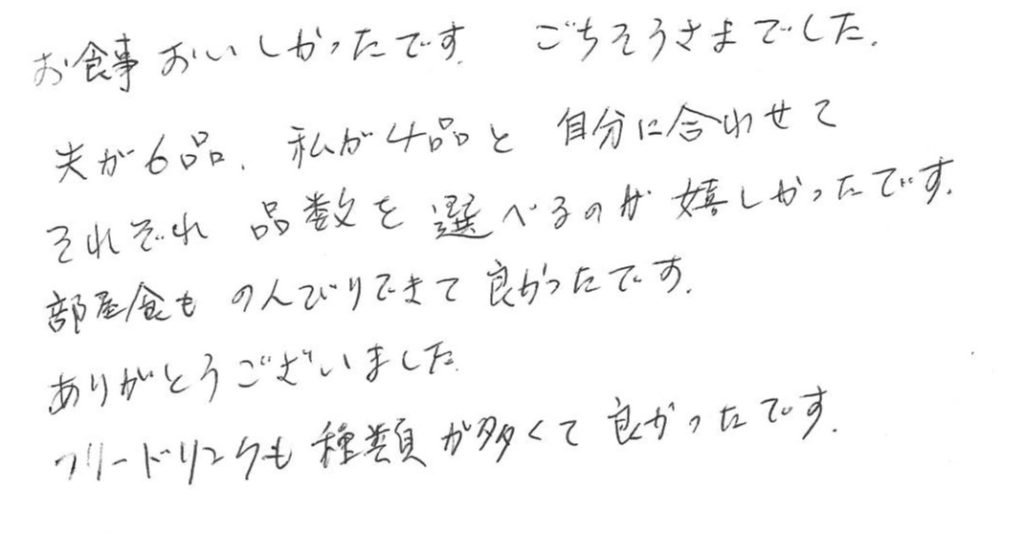 お食事おいしかったです。 ごちそうさまでした。
夫が6品、私が4品と 自分に合わせて
それぞれ 品数を選べるのが嬉しかったです。
部屋食も のんびりできて良かったです。
ありがとうございました
フリードリンクも種類が多くて良かったです。